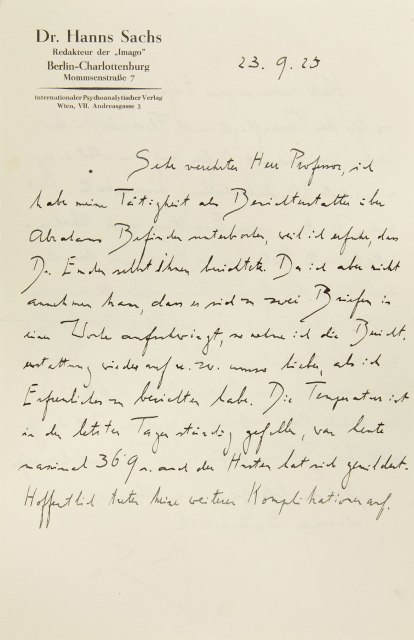 Dr. Hanns Sachs
Redakteur der „Imago"
Berlin-Charlottenburg
Mommsenstraße 7
Internationaler Psychoanalytischer Verlag
Wien, VII. Andreasgasse 3
23. 9. 25
Sehr verehrter Herr Professor, ich
habe meine Tätigkeit als Berichterstatter über
Abrahams Befinden unterbrochen, weil ich erfuhr, dass
Dr. selbst Ihnen berichtete. Da ich aber nicht
annehmen kann, dass er sich zu zwei Briefen in
einer Woche aufschwingt, so nehme ich die Bericht-
erstattung wieder auf u. zw. umso lieber, als ich
Erfreuliches zu berichten habe. Die Temperatur ist
in den letzten Tagen ständig gefallen, war heute
maximal 36·9 u. auch der Husten hat sich gemildert.
Hoffentlich treten keine weiteren Komplikationen auf.